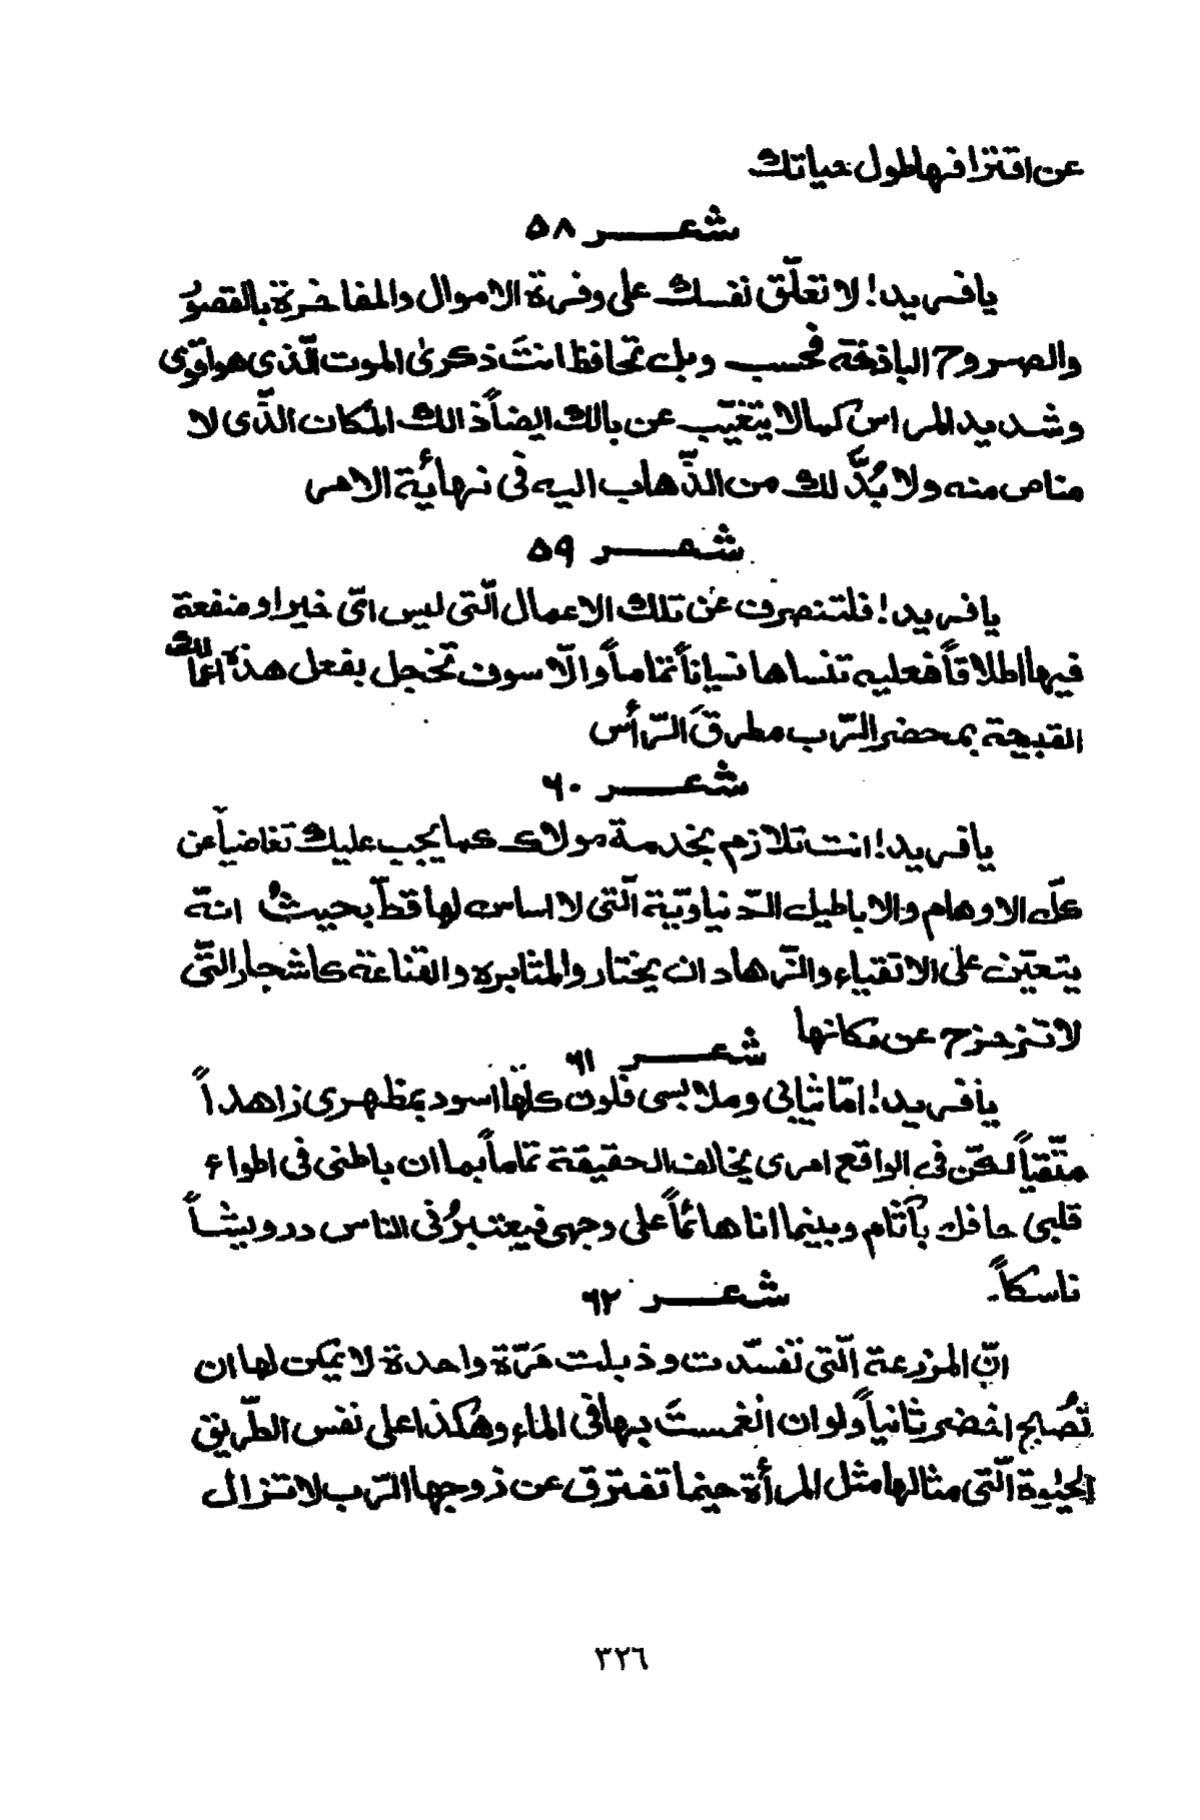 عن اقتزافها طول حياتك
شعر ٥٨
يا فريد! لا تعلّق نفسك على وفرة الاموال والمفاخرة بالقصوُر
والصروح الباذخة فحسب وبل تحافظ انتَ ذكرىٰ الموت الّذى هو اقوى
وشديد المراس كما لا يتغيّب عن بالك ايضاً ذالك المكان الذّى لا
مناص منه ولا بُدَّ لك من الذّهاب اليه فى نهائية الامر
شعر ٥٩
يا فريد! فلتنصرف عن تلك الاعمال الّتى ليس اىّ خيرا و منفعة
فيها اطلاقاً فعليه تنساها نسياناً تماماً والّا سوف تخجل بفعل هذه اعمالك
القبيحة بمحضر الرّب مطرقَ الرّأس
شعر ٦٠
يا فريد! انت تلازم بخدمة مولاك كما يجب عليك تغاضياً عن
كلّ الاوهام والاباطيل الدّنياويّة الّتى لا اساس لها قطّ بحيثُ انهّ
يتعيّن على الاتقياء والزّهاد ان يختار والمثابره والقناعة كاشجار التّى
لا تنزحزح عن مكانها
شعر ٦١
يا فريد! امّا ثيابى وملابسى فلون كلّها اسود بمظهرى زاهداً
متّقياً لكّن فى الواقع امرى يخالف الحقيقة تماماً بما ان باطنى فى اطواء
قلبى حافل بآثام وبينما انا هائماً على وجهى فيعتبرُنى الناس درويشاً
ناسكاً۔
شعر ٦٢
انّ المزرعة الّتى تفسّدت وذبلت مَرّة واحدة لا يمكن لها ان
تُصبح اخضر ثانياً ولو ان انْغمستَ بها فى الماء وهكذا على نفس الطّريق
الّتى مثالها مثل المرأة حينما تفترق عن زوجها الرّب لا تزال
٣٢٦